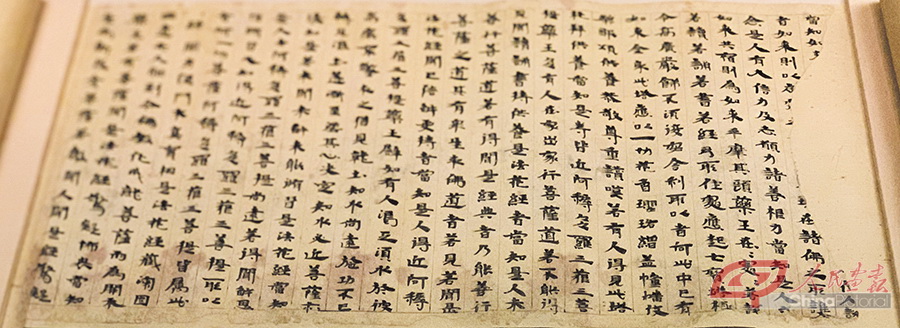 當知如
者如來則以 現在諸佛之
念是人有大信力及志願力諸善根力當
如來共宿則為如來手摩其頭藥王在
讀若誦若書若經 所住處應起七寶
令高廣嚴飾不須復安舍利所以者何此中已有
如來全身此塔應以一切花香瓔珞繒蓋幢幡伎
樂歌頌供養恭敬尊重讚嘆若有人得見此塔
礼拜供養當知是等皆近阿耨多羅三藐三菩
提藥王多有人在家出家行菩薩道若不能得
見聞讀誦書持供養是法花經者當知是人未
善行菩薩道若有得聞是經典者乃能善行
菩薩之道其有眾生求佛道者若見若聞是
法花經聞已信解受持者當知是人得近阿耨
多羅三藐三菩提藥王譬如有人渴乏須水於彼
高原穿鑿求之猶見乾土知水尚遠施功不已
轉見濕土遂漸至泥其心決定知水必近菩薩亦
復如是若未聞未解未能修習是法花經當知
是人去阿耨多羅三藐三菩提尚遠若得聞解思
惟 必知得近阿耨多羅三藐三菩提所以
者何一切菩薩阿耨多羅三藐三菩提皆属此
經 開方便門示真實相是法花經藏深固幽
遠无人能到今佛教化成就菩薩而為開示
藥王若有菩薩聞是法花經驚疑怖畏當知
是為新發意菩薩若聲聞人聞是經驚疑
人民画报
ChinaPictorial